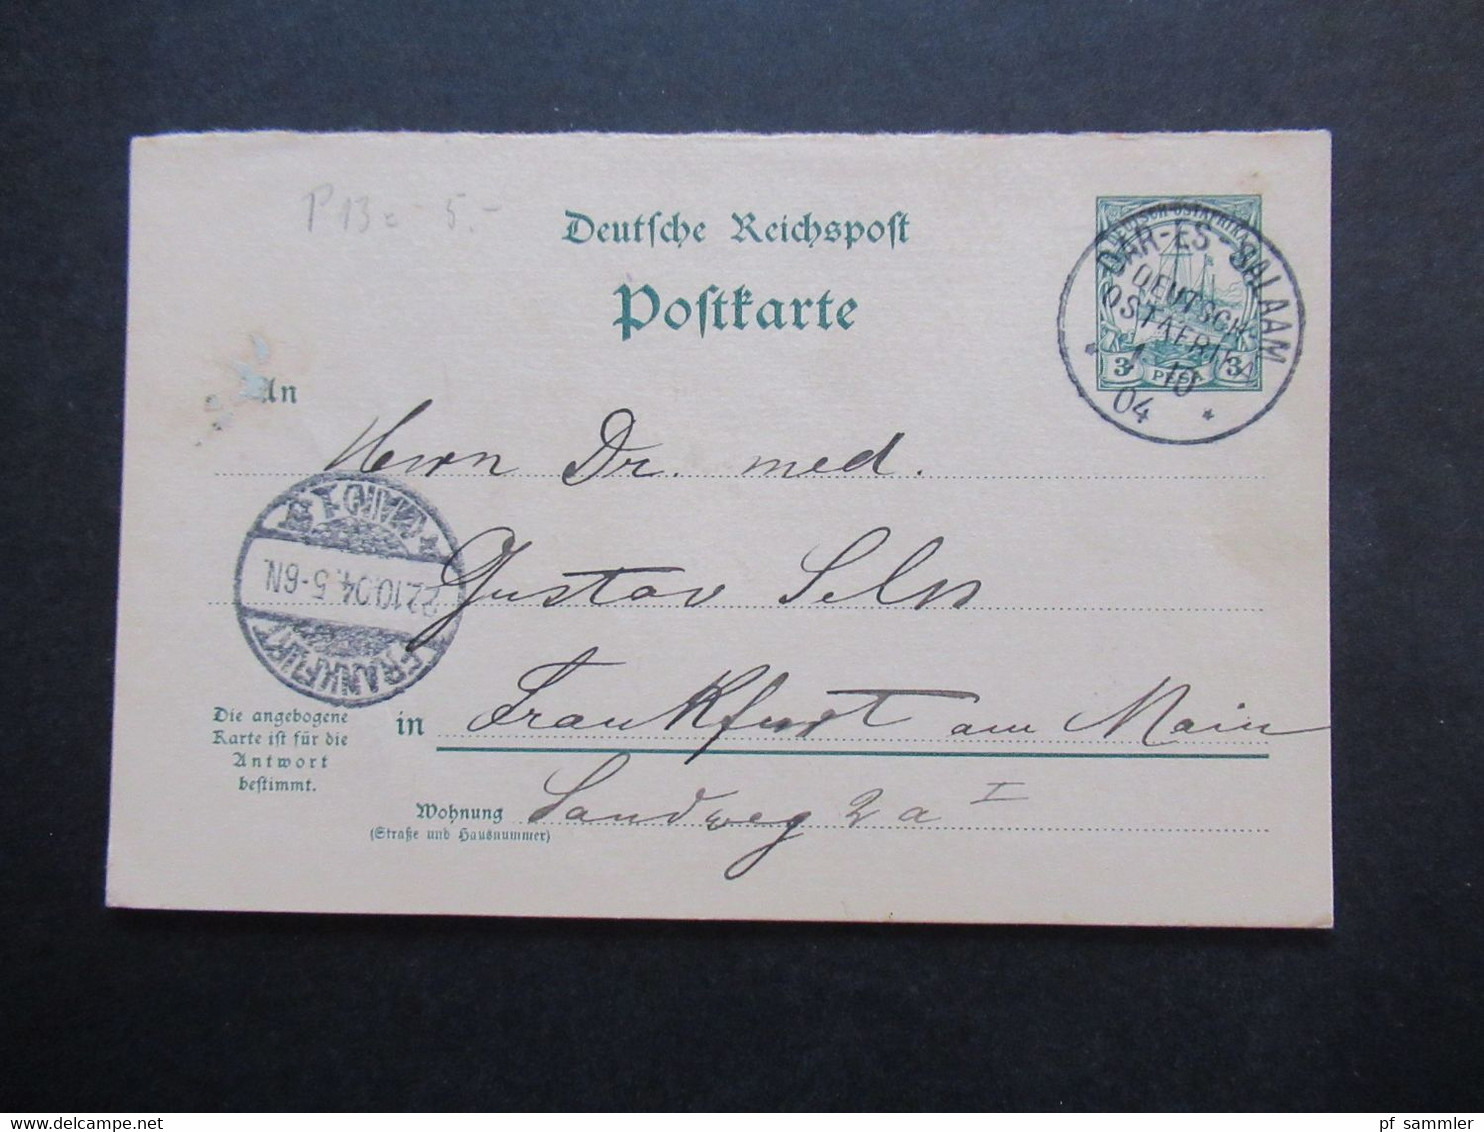 P 13 c - 5.-
Deutsche Reichspost
Postkarte
DEUTSCH-OSTAFRIKA
3 PESA 3
DAR-ES-SALAAM
DEUTSCH-
OSTAFRIKA
1 10
04
An
Herrn Dr. med.
FRANKFURT (MAIN) 1
22.10.04. 5-6N.
Gustav
in Frankfurt am Main
Die angebogene
Karte ist für die
Antwort
bestimmt.
Wohnung Sandweg 2a I
(Straße und Hausnummer)
www.delcampe.net
pf_sammler